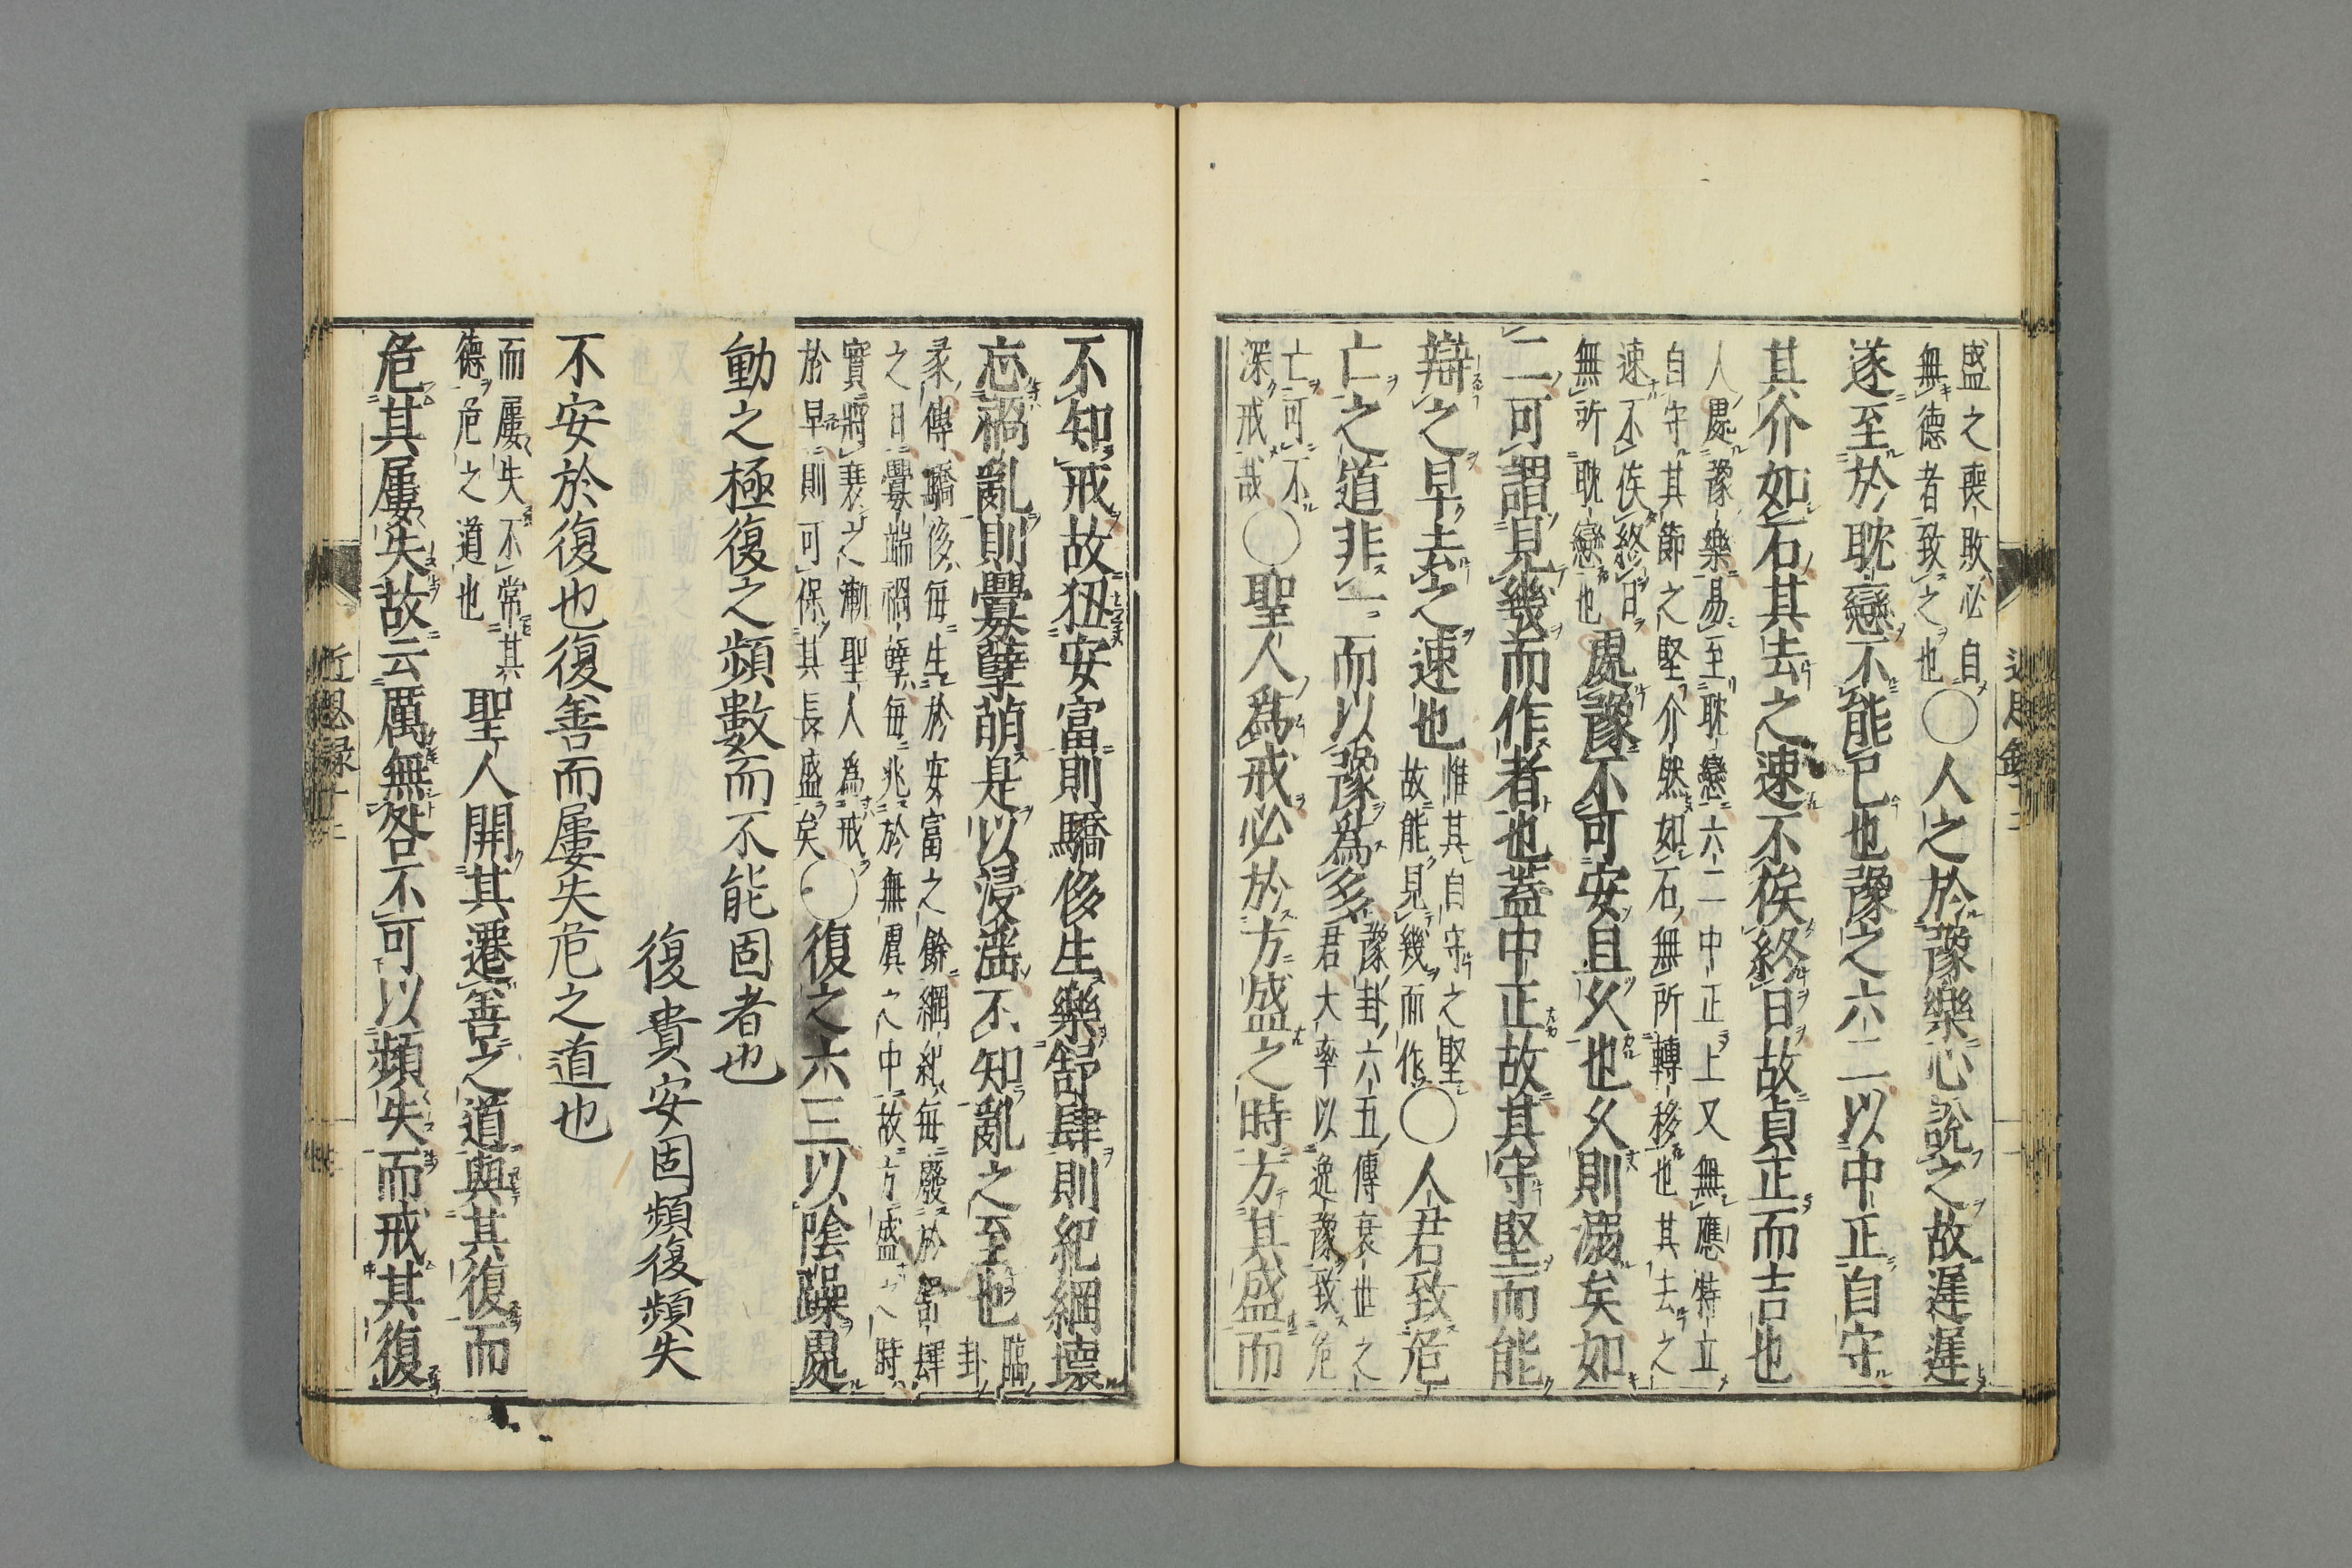 盛之喪敗必自
無德者致之也○人之於豫樂心說之故遲遲
遂至於耽戀不能已也豫之六二以中正自守
其介如石其去之速不俟終日故貞正而吉也
人處豫樂易至耽戀六二中正上又無應特立
自守其節之堅介然如石無所轉移也其去之
速不俟終日
無所耽戀也處豫不可安且久也久則溺矣如
二可謂見幾而作者也蓋中正故其守堅而能
辯之早去之速也惟其自守之堅
故能見幾而作○人君致危
亡之道非一而以豫為多豫卦六五傳衰世之
君大率以逸豫致危
亡可不
深戒哉○聖人為戒必於方盛之時方其盛而
不知戒故狃安富則驕侈生樂舒肆則紀綱壞
忘禍亂則釁孽萌是以浸淫不知亂之至也臨
卦
彖傳驕侈每生於安富之餘綱紀每廢於舒肆
之日釁端禍孽每兆於無虞之中故方盛之時
實將衰之漸聖人為戒
於早則可保其長盛矣○復之六三以陰躁處
動之極復之頻數而不能固者也
復貴安固頻復頻失
不安於復也復善而屢失危之道也
而屢失不常其
德危之道也聖人開其遷善之道與其復而
危其屢失故云厲無咎不可以頻失而戒其復
近思録十二
近思録十二